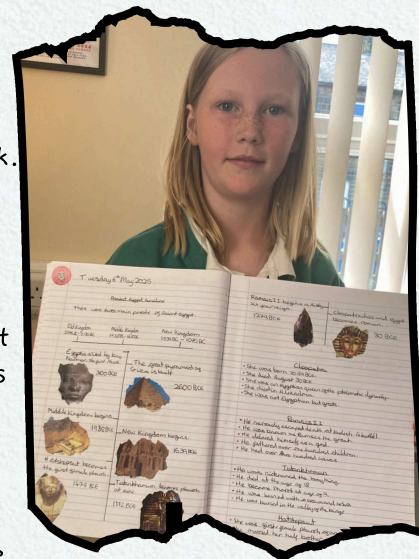 k.
t
s
s
3
Tuesday 6th May 2025
Ancient Egypt timeline
There were three main periods of Ancient Egypt.
Old Kingdom
Middle Kingdom
New Kingdom
Egypt ruled by
3100 BCE
The great pyramid of
Giza is built
2600 BCE
Middle Kingdom begins.
1980 BCE
New Kingdom begins.
1539 BCE
Hatshepsut becomes
the first female pharaoh.
1473 BCE
Tutankhamun becomes pharaoh
at nine
1332 BCE
Ramses II begins
66 year reign.
1279 BCE
Cleopatra dies and Egypt
becomes roman.
30 BCE
Cleopatra
• She was born 70/69 BCE.
• She died August 30 BCE
• She was an Egyptian queen of the ptolemaic dynasty.
• She died in Alexandria.
• She was not Egyptian but greek.
Ramses II
• He narrowly escaped death at Kadesh (battle)
• He was known as Ramses the great.
• He fathered over one hundred children.
• He had over
Tutankhamun
• He was nicknamed the boy king.
• He died at the age of 18
• He became Pharaoh at age of 9.
• He was buried in the valley of the kings
Hatshepsut
• She was first female pharaoh
married her half brother